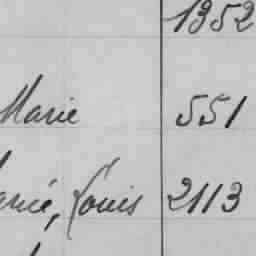 1352
Marie 551
Louis 2113